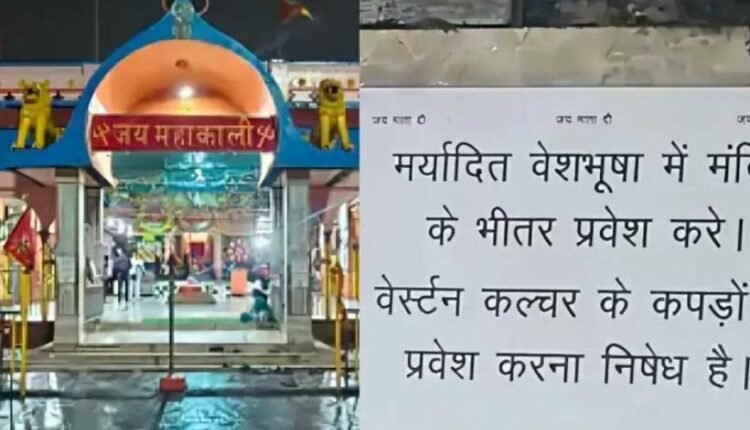 जय महाकाली
जय माता दी जय माता दी
मर्यादित वेशभूषा में
के भीतर प्रवेश करे।
वेर्स्टन कल्चर के कपड़ों
प्रवेश करना निषेध है।